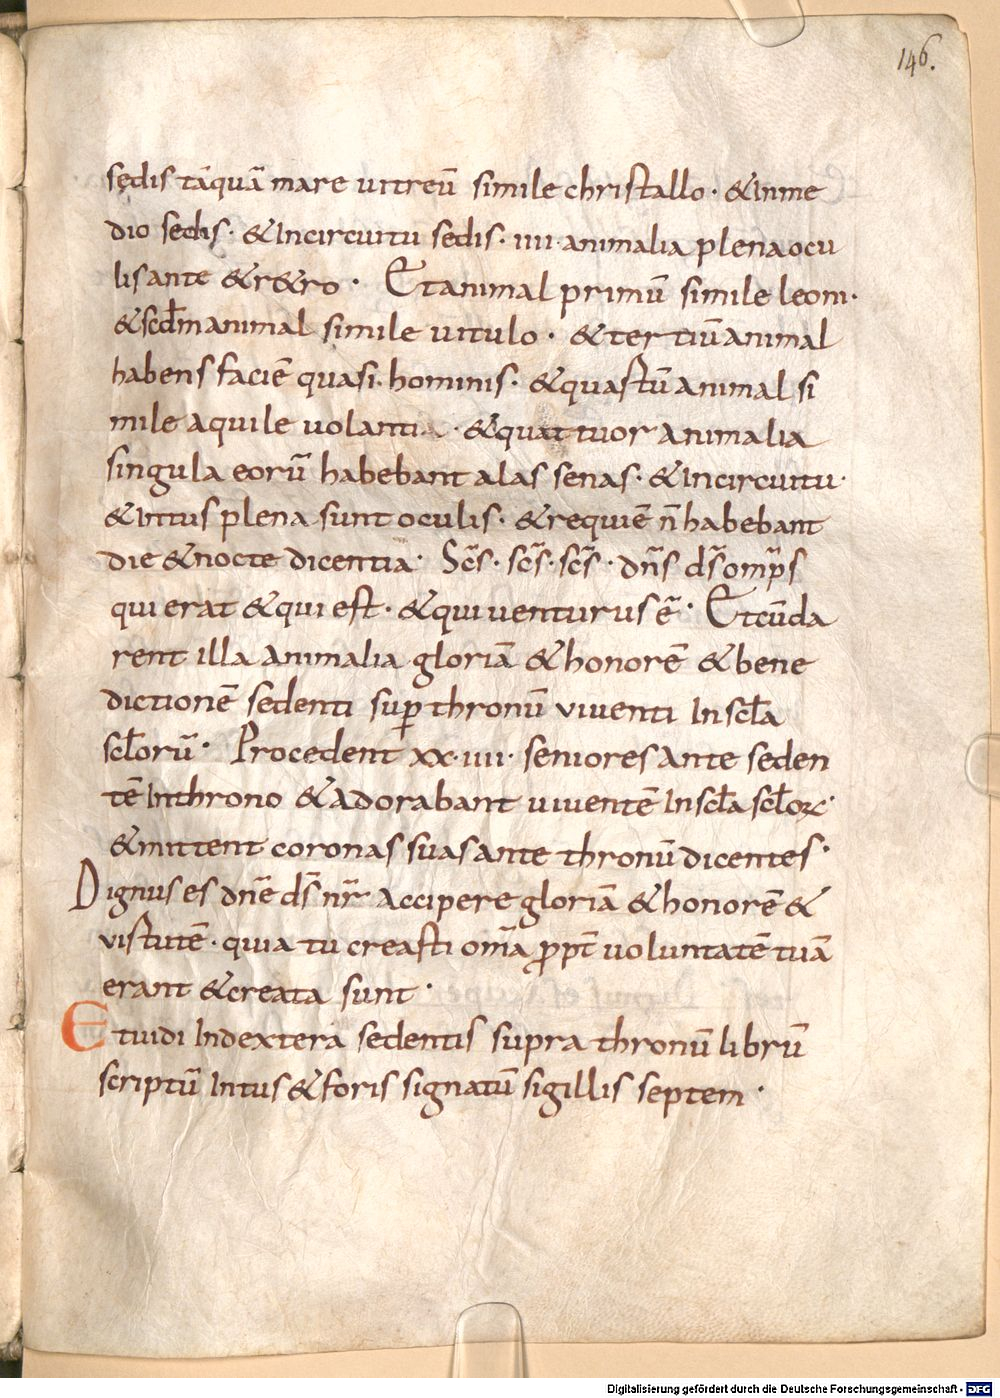 146.
sedis tāquā mare uitreū simile christallo · & in me
dio sedis · & in circuitu sedis · IIII · animalia plena ocu
lis ante & r&ro · Et animal primū simile leoni ·
& scdm̄ animal simile uitulo · & tertiū animal
habens faciē quasi hominis · & quartū animal si
mile aquile uolanti · & quattuor animalia
singula eorū habebant alas senas · & in circuitu ·
& intus plena sunt oculis · & requiē n̄ habebant
die & nocte dicentia · Scs̄ · scs̄ · scs̄ · dn̄s ds̄ omp̄s
qui erat & qui est · & qui uenturus ē · Et cū da
rent illa animalia gloriā & honorē & bene
dictionē sedenti sup̱ thronū uiuenti in scl̄a
scl̄orū · Procedent XX · IIII · seniores ante seden
tē in throno & adorabant uiuentē in scl̄a scl̄oꝝ ·
& mittent coronas suas ante thronū dicentes ·
Dignus es dn̄e ds̄ nr̄ accipere gloriā & honorē &
uirtutē · quia tu creasti om̄a ꝓpt̄ uoluntatē tuā
erant & creata sunt ·
Et uidi in dextera sedentis supra thronū librū
scriptū intus & foris signatū sigillis septem ·
Digitalisierung gefördert durch die Deutsche Forschungsgemeinschaft - DFG